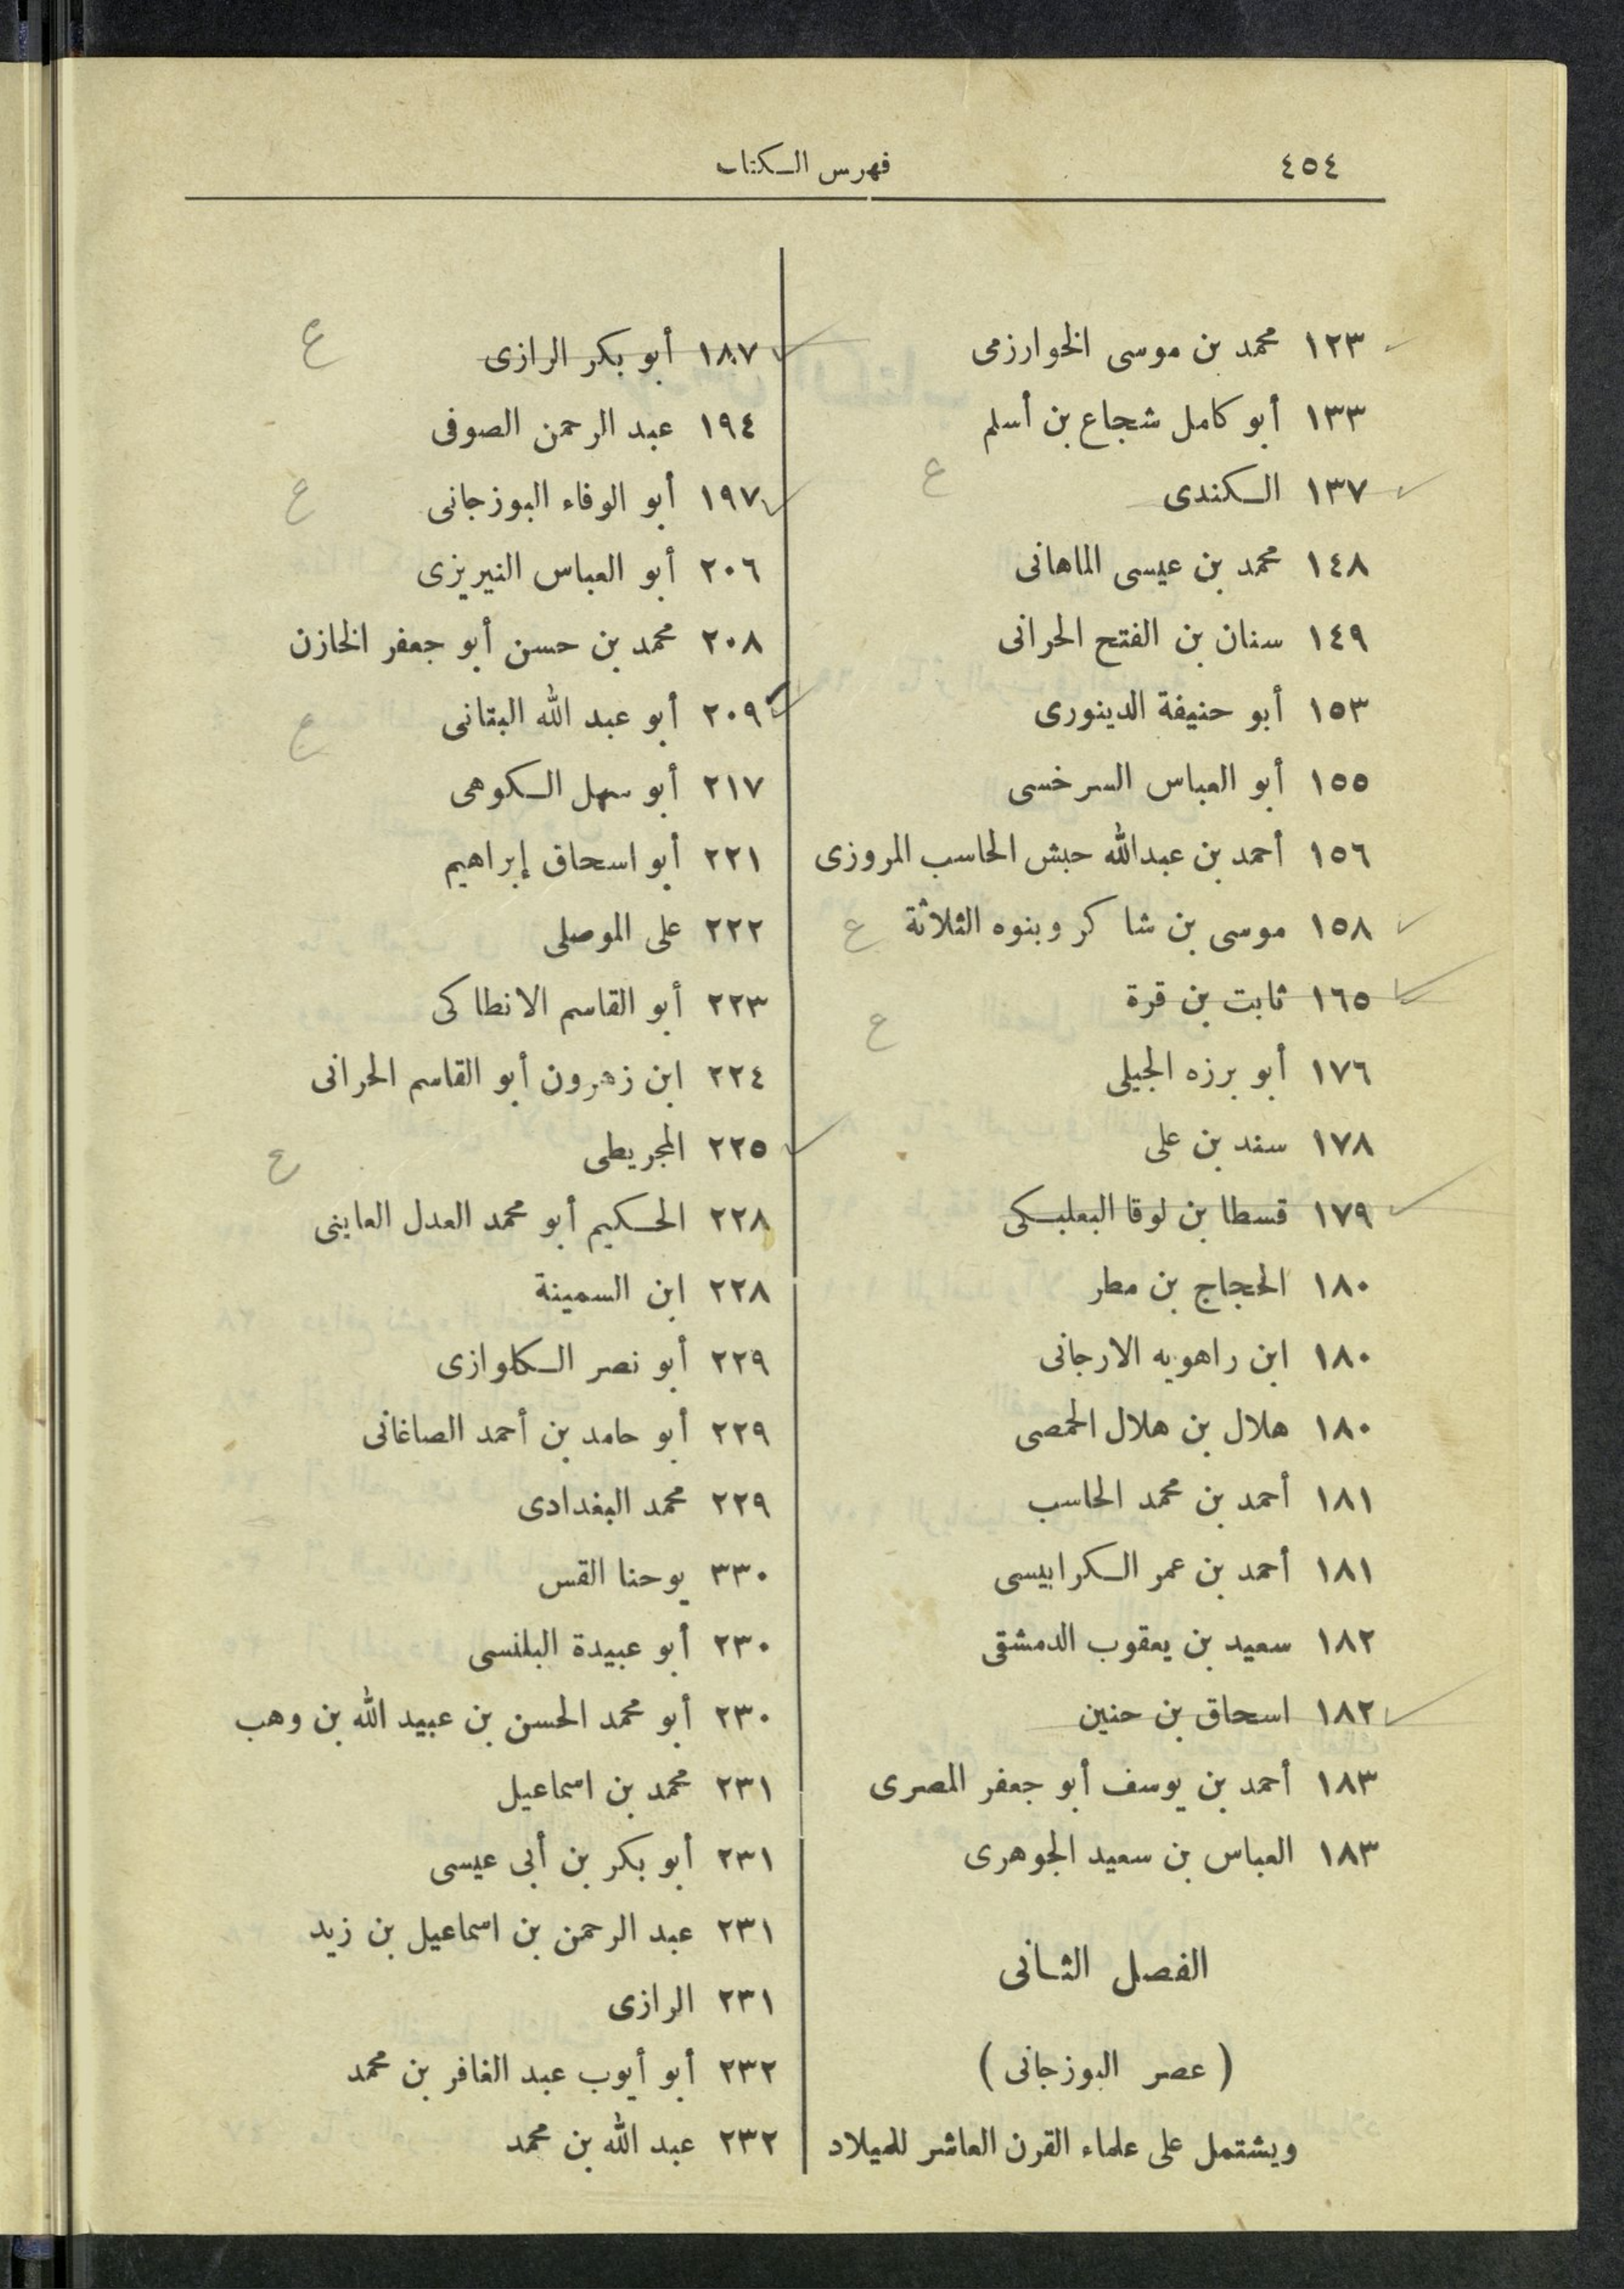 ٤٥٤
فهرس الكتاب
١٢٣ محمد بن موسى الخوارزمى
١٣٣ أبو كامل شجاع بن أسلم
١٣٧ الكندى
ع
١٤٨ محمد بن عيسى الماهانى
١٤٩ سنان بن الفتح الحرانى
١٥٣ أبو حنيفة الدينورى
١٥٥ أبو العباس السرخسى
١٥٦ أحمد بن عبدالله حبش الحاسب المروزى
١٥٨ موسى بن شاكر وبنوه الثلاثة
ع
١٦٥ ثابت بن قرة
ع
١٧٦ أبو برزه الجيلى
١٧٨ سند بن على
١٧٩ قسطا بن لوقا البعلبكى
١٨٠ الحجاج بن مطر
١٨٠ ابن راهويه الارجانى
١٨٠ هلال بن هلال الحمصى
١٨١ أحمد بن محمد الحاسب
١٨١ أحمد بن عمر الكرابيسى
١٨٢ سعيد بن يعقوب الدمشقى
١٨٢ اسحاق بن حنين
١٨٣ أحمد بن يوسف أبو جعفر المصرى
١٨٣ العباس بن سعيد الجوهرى
الفصل الثانى
( عصر البوزجانى )
ويشتمل على علماء القرن العاشر للميلاد
١٨٧ أبو بكر الرازى
ع
١٩٤ عبد الرحمن الصوفى
١٩٧ أبو الوفاء البوزجانى
ع
٢٠٦ أبو العباس النيريزى
٢٠٨ محمد بن حسن أبو جعفر الخازن
٢٠٩ أبو عبد الله البتانى
ع
٢١٧ أبو سهل الكوهى
٢٢١ أبو اسحاق إبراهيم
٢٢٢ على الموصلى
٢٢٣ أبو القاسم الانطاكى
٢٢٤ ابن زهرون أبو القاسم الحرانى
٢٢٥ المجريطى
ع
٢٢٨ الحكيم أبو محمد العدل العاينى
٢٢٨ ابن السمينة
٢٢٩ أبو نصر الكلوازى
٢٢٩ أبو حامد بن أحمد الصاغانى
٢٢٩ محمد البغدادى
٣٣٠ يوحنا القس
٢٣٠ أبو عبيدة البلنسى
٢٣٠ أبو محمد الحسن بن عبيد الله بن وهب
٢٣١ محمد بن اسماعيل
٢٣١ أبو بكر بن أبى عيسى
٢٣١ عبد الرحمن بن اسماعيل بن زيد
٢٣١ الرازى
٢٣٢ أبو أيوب عبد الغافر بن محمد
٢٣٢ عبد الله بن محمد